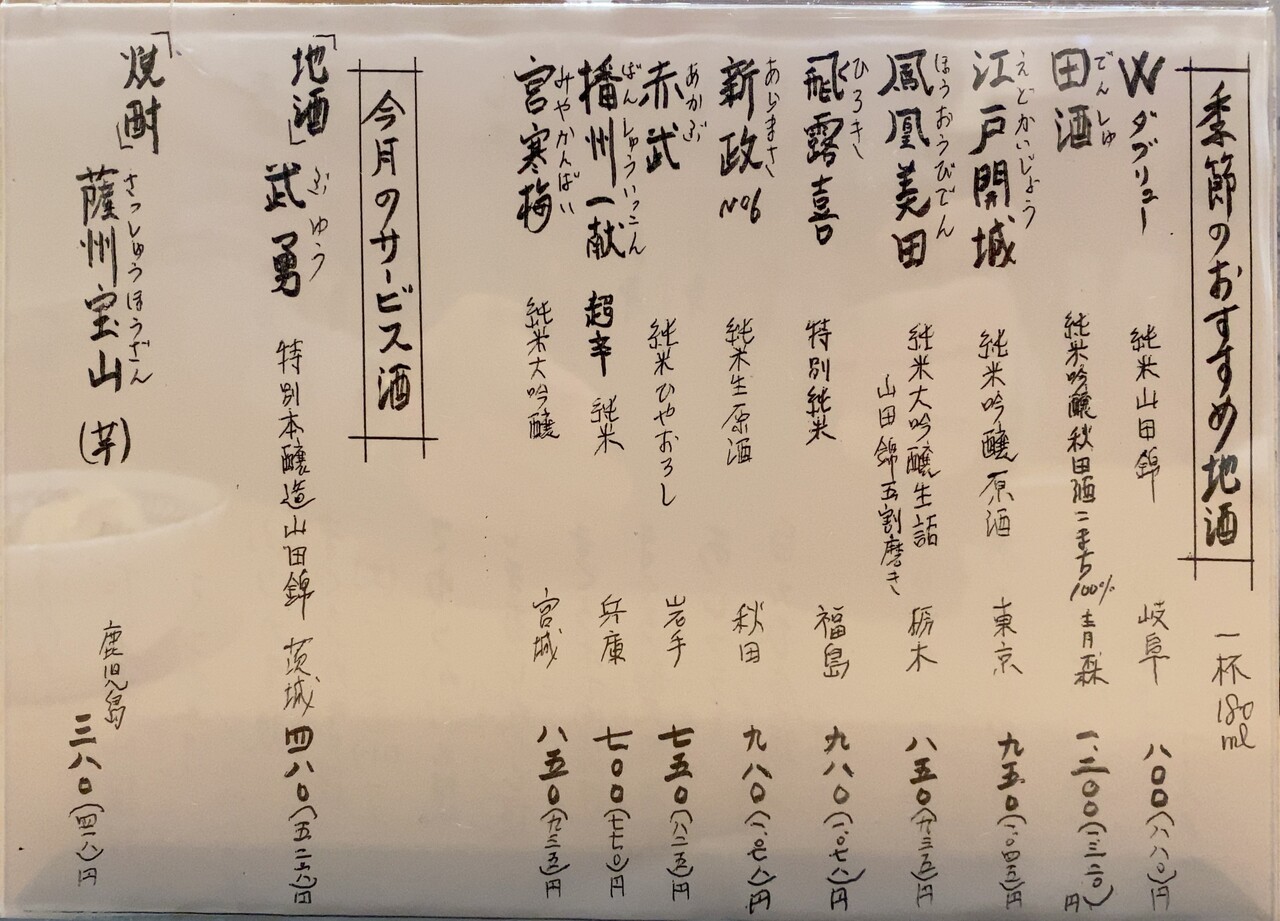 季節のおすすめ地酒 一杯180ml
W ダブリュー 純米山田錦 岐阜 八〇〇(八八〇)円
田酒 でんしゅ 純米吟醸秋田酒こまち100% 青森 一、二〇〇(一、三二〇)円
江戸開城 えどかいじょう 純米吟醸原酒 東京 九五〇(一、〇四五)円
鳳凰美田 ほうおうびでん 純米大吟醸生詰 栃木 八五〇(九三五)円
山田錦五割磨き
飛露喜 ひろき 特別純米 福島 九八〇(一、〇七八)円
新政 No6 あらまさ 純米生原酒 秋田 九八〇(一、〇七八)円
赤武 あかぶ 純米ひやおろし 岩手 七五〇(八二五)円
播州一献 ばんしゅういっこん 超辛 純米 兵庫 七〇〇(七七〇)円
宮寒梅 みやかんばい 純米大吟醸 宮城 八五〇(九三五)円
今月のサービス酒
「地酒」 武勇 ぶゆう 特別本醸造山田錦 茨城 四八〇(五二八)円
「焼酎」 薩州宝山(芋) さっしゅうほうざん 鹿児島 三八〇(四一八)円